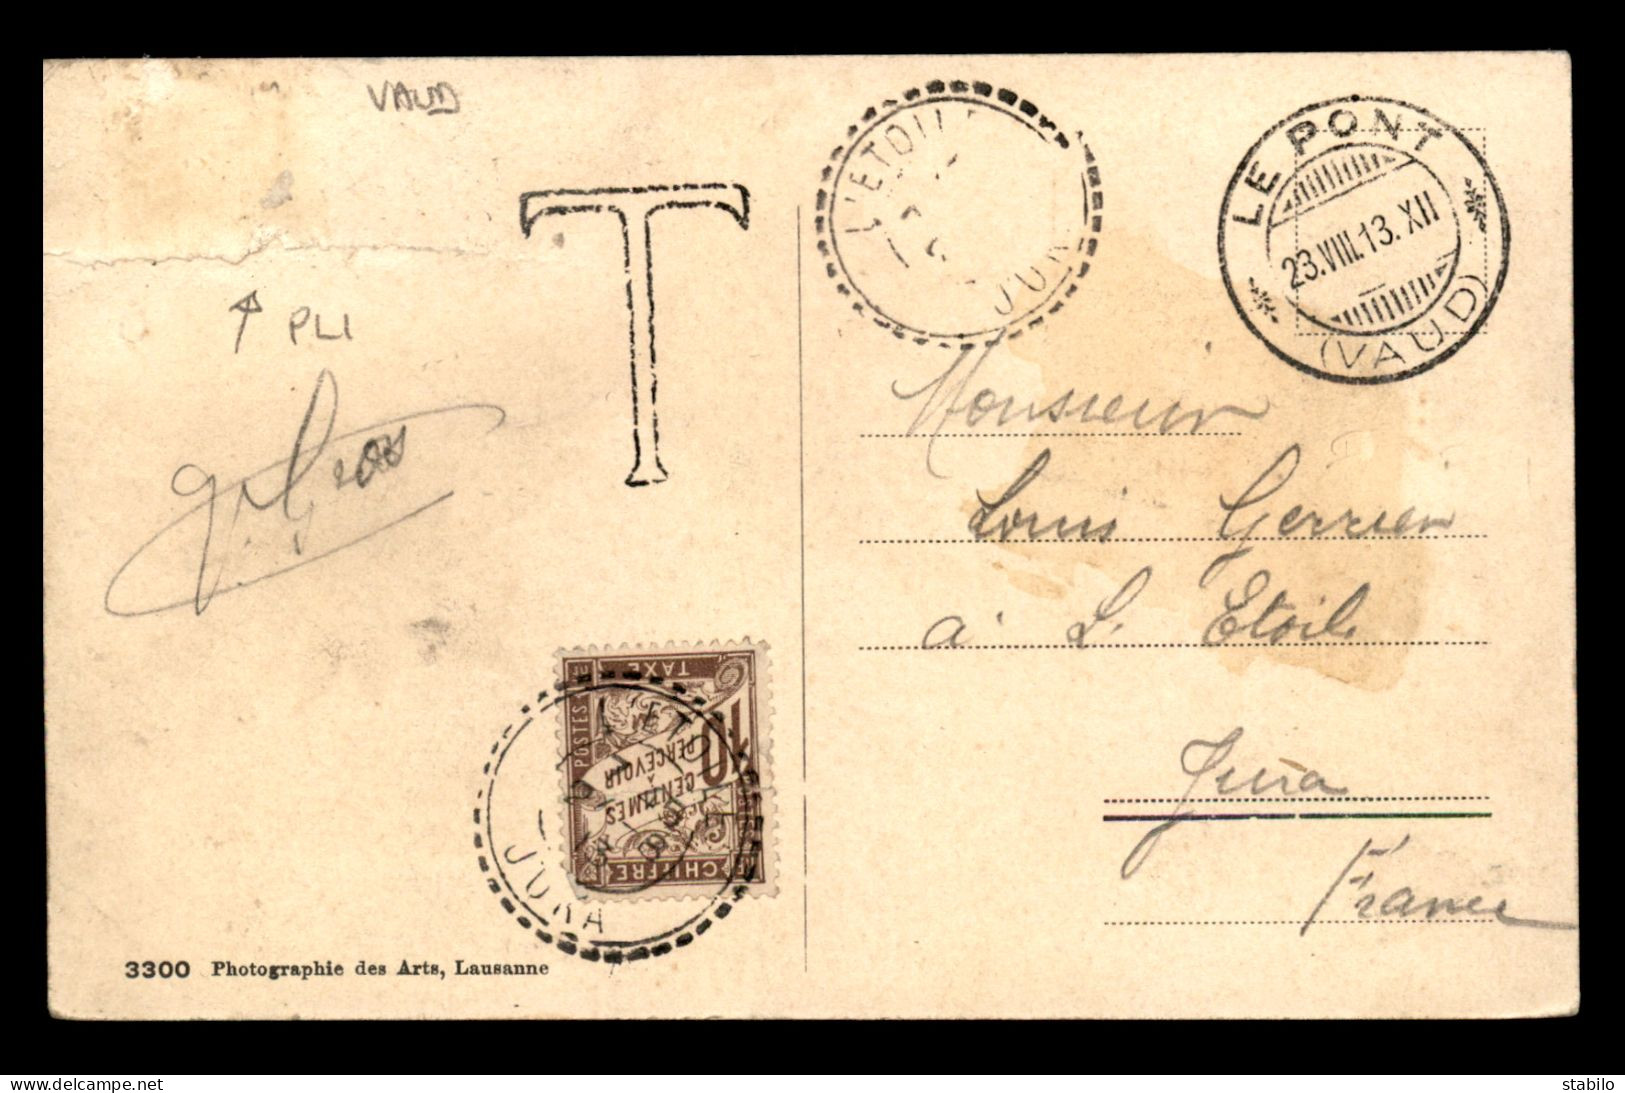 VAUD
T
L'ETOILE
JURA
LE PONT
23.VIII.13.XII
(VAUD)
PLI
Monsieur
Louis Gerrier
à L'Etoile
Jura
France
POSTES
TAXE
10
CENTIMES
À
PERCEVOIR
CHIFFRE
L'ETOILE
JURA
3300 Photographie des Arts, Lausanne
delcampe.net
stabilo